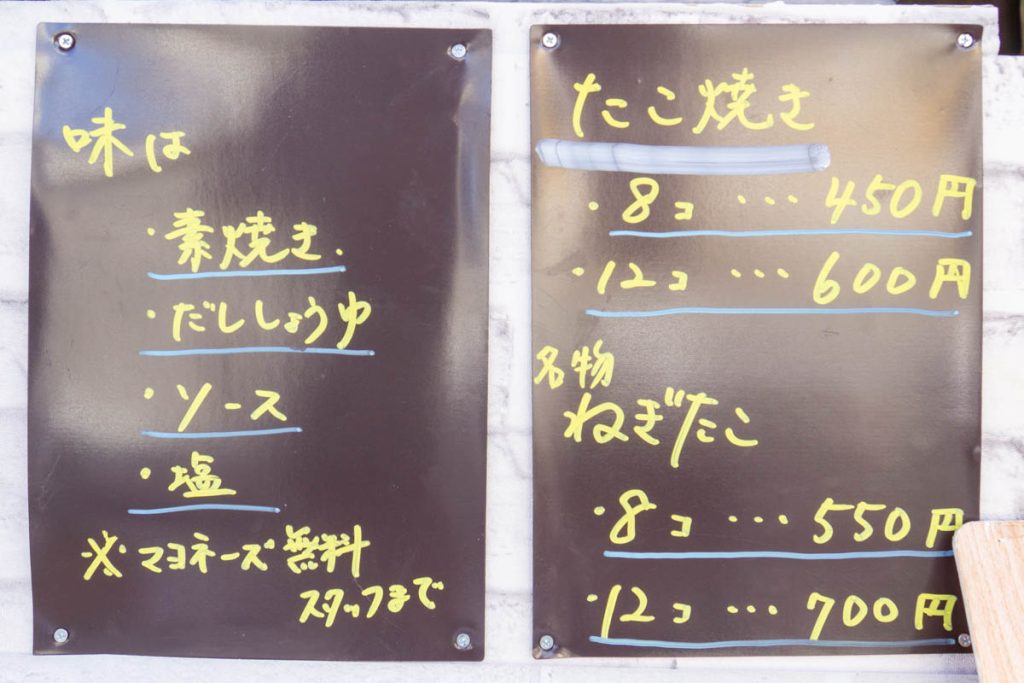 味は
・素焼き.
・だししょうゆ
・ソース
・塩
※マヨネーズ無料
スタッフまで
たこ焼き
・8コ … 450円
・12コ … 600円
名物
ねぎたこ
・8コ … 550円
・12コ … 700円